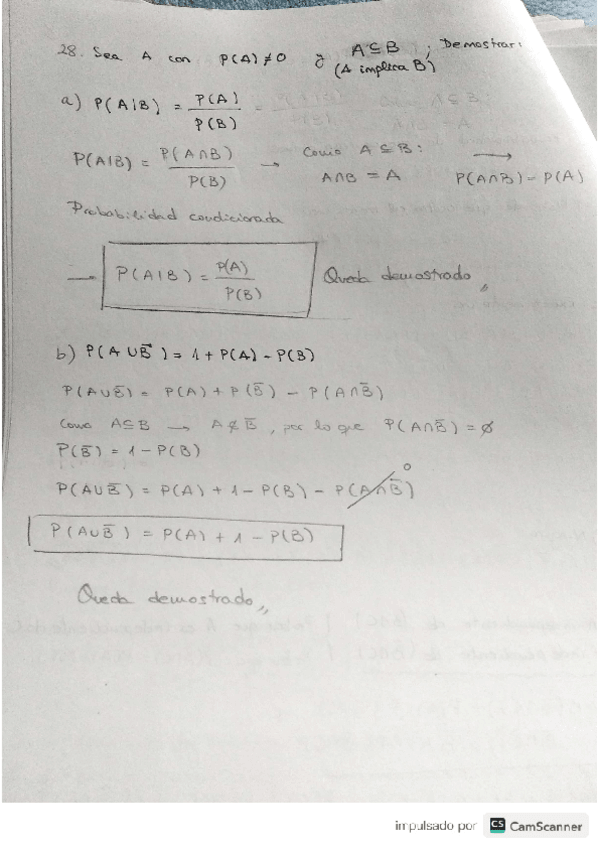 28. Sea A con P(A) ≠ 0 y A ⊆ B ; Demostrar:
(A implica B)
a) P(A|B) = P(A) / P(B)
P(A|B) = P(A∩B) / P(B) → Como A ⊆ B: →
A∩B = A P(A∩B) = P(A)
Probabilidad condicionada
→ P(A|B) = P(A) / P(B) Queda demostrado,,
b) P(A ∪ B̄) = 1 + P(A) - P(B)
P(A∪B̄) = P(A) + P(B̄) - P(A∩B̄)
Como A⊆B → A ⊄ B̄, por lo que P(A∩B̄) = ∅
P(B̄) = 1 - P(B)
P(A∪B̄) = P(A) + 1 - P(B) - P(A∩B̄) 0
P(A∪B̄) = P(A) + 1 - P(B)
Queda demostrado,,
impulsado por CS CamScanner